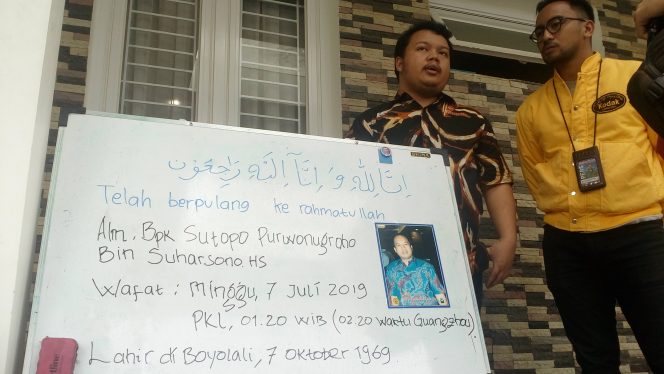 إِنَّا لِلَّهِ وَ إِنَّا إِلَيْهِ رَاجِعُوْنَ
Telah berpulang ke rahmatullah
Alm. Bpk Sutopo Purwonugroho
Bin Suharsono.HS
Wafat : Minggu, 7 Juli 2019
PKL, 01.20 WIB (02.20 waktu Guangzhou)
Lahir di Boyolali, 7 Oktober 1969
Kodak